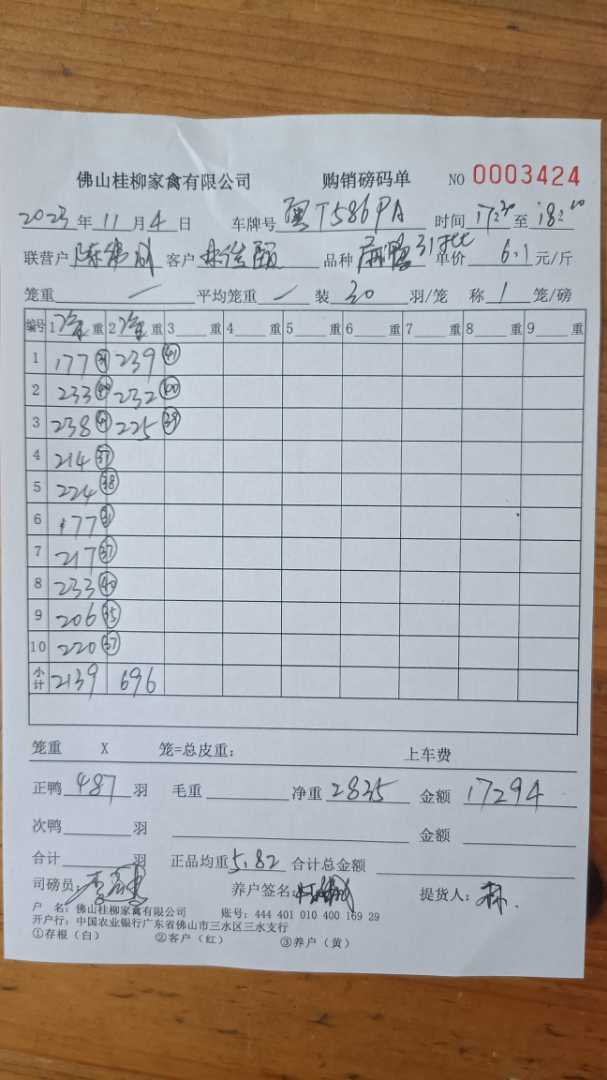 佛山桂柳家禽有限公司 购销磅码单 NO 0003424
2023年11月4日 车牌号 粤T586PA 时间 17:30至18:00
联营户 客户 品种 麻鸭 单价 6.1元/斤
笼重 — 平均笼重 — 装30羽/笼 称1笼/磅
编号 1净重 2净重 3重 4重 5重 6重 7重 8重 9重
1 177 239 41
2 233 232
3 238 225 39
4 214 37
5 224 38
6 177 31
7 217 37
8 233 40
9 206 35
10 220 37
小计 2139 696
笼重 X 笼=总皮重: 上车费
正鸭 487 羽 毛重 净重 2835 金额 17294
次鸭 羽 金额
合计 羽 正品均重 5.82 合计总金额
司磅员: 养户签名: 提货人: 林
户 名: 佛山桂柳家禽有限公司 账号: 444 401 010 400 169 29
开户行: 中国农业银行广东省佛山市三水区三水支行
①存根(白) ②客户(红) ③养户(黄)